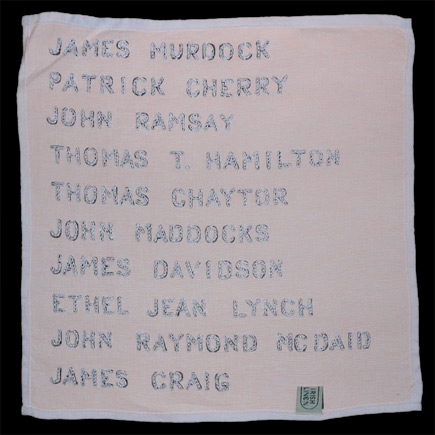 JAMES MURDOCK
PATRICK CHERRY
JOHN RAMSAY
THOMAS T. HAMILTON
THOMAS CHAYTOR
JOHN MADDOCKS
JAMES DAVIDSON
ETHEL JEAN LYNCH
JOHN RAYMOND MCDAID
JAMES CRAIG
IRISH
LINEN